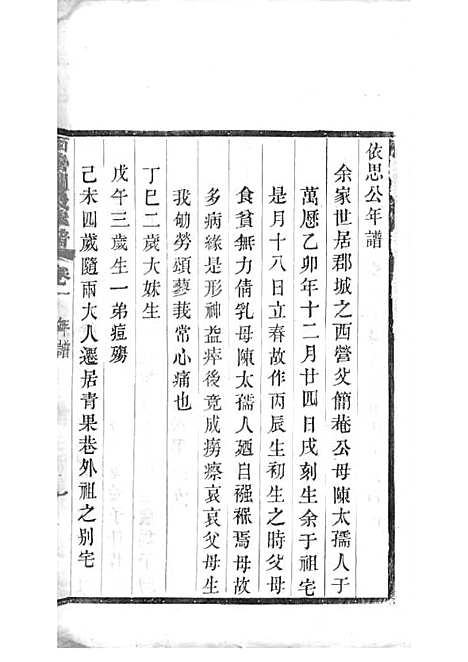 依思公年譜
余家世居郡城之西營父簡菴公母陳太孺人于
萬曆乙卯年十二月廿四日戌刻生余于祖宅
是月十八日立春故作丙辰生初生之時父母
食貧無力倩乳母陳太孺人廼自襁褓焉母故
多病緣是形神益瘁後竟成癆瘵哀哀父母生
我劬勞頌蓼莪常心痛也
丁巳二歲大妹生
戊午三歲生一弟痘殤
己未四歲隨兩大人遷居青果巷外祖之別宅
卷一 年譜